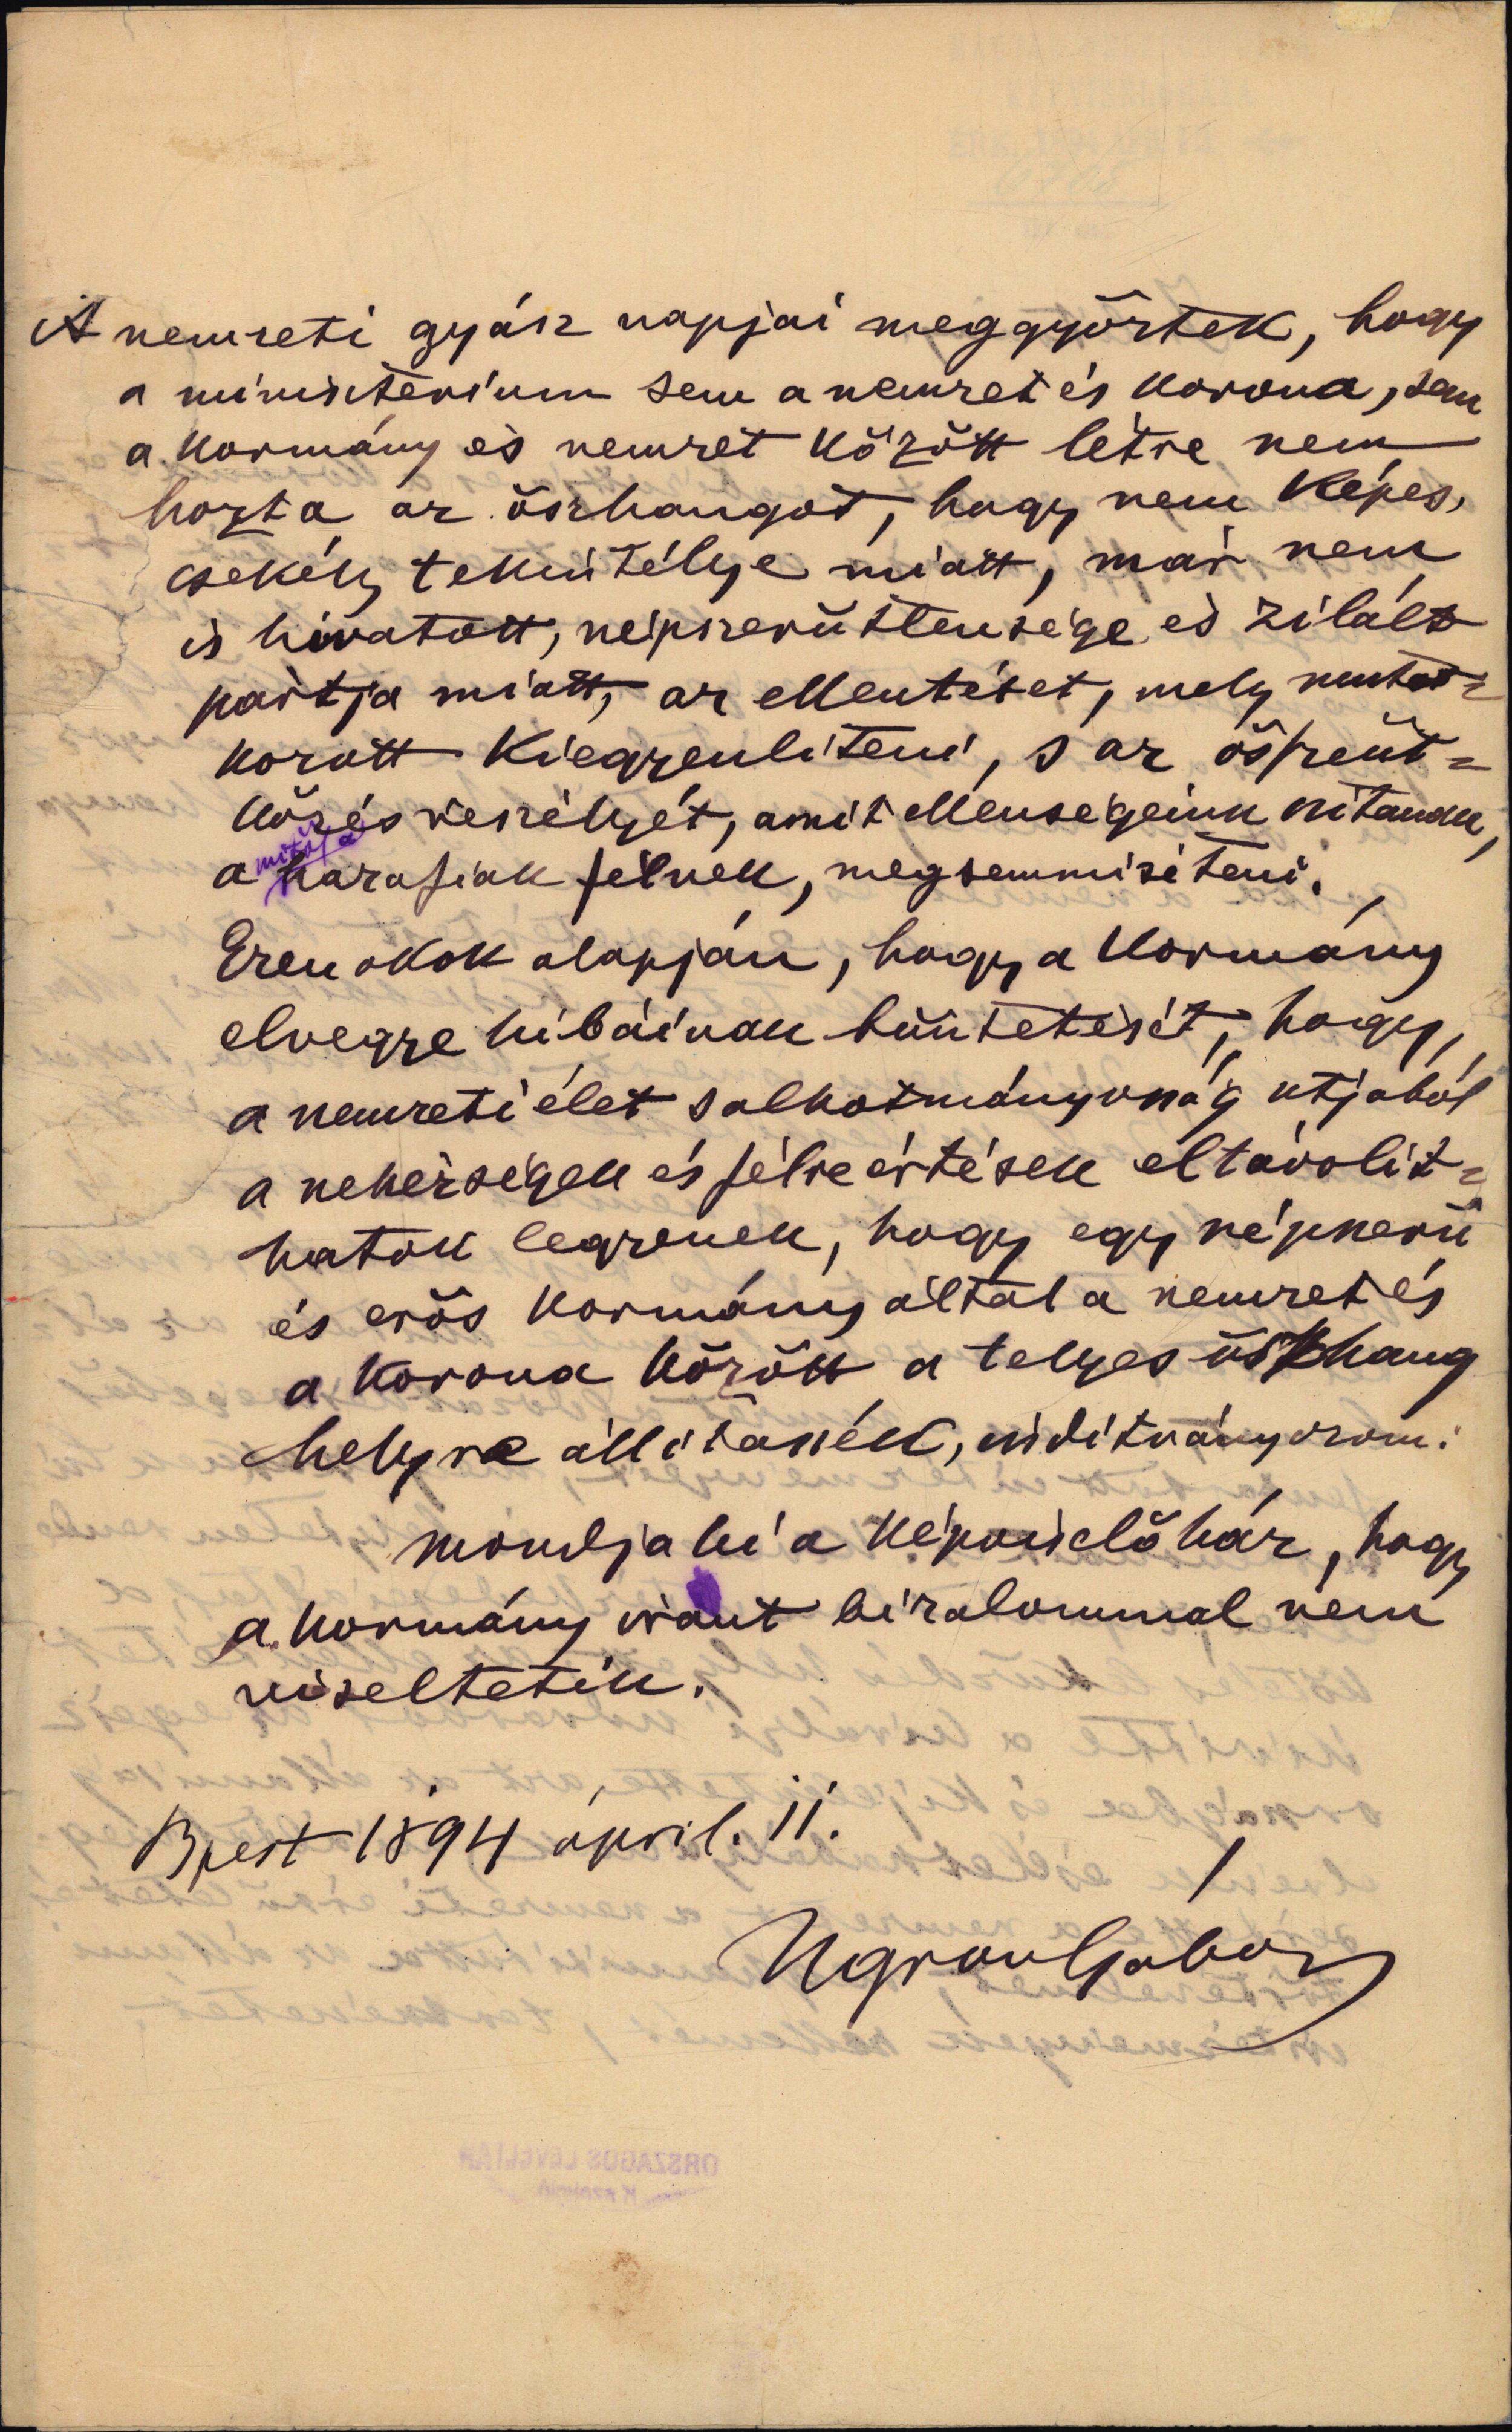 A nemzeti gyász napjai meggyőztek, hogy
a ministerium sem a nemzet és korona, sem
a kormány és nemzet között létre nem
hozta az öszhangot, hogy nem képes,
csekély tekintélye miatt, már nem
is hivatott, népszerűtlensége és zilált
pártja miatt, az ellentétet, mely mutat=
kozott kiegyenlíteni, s az össeüt=
közés veszélyét, amit ellenségeink szitanak,
mitől a
a hazafiak félnek, megsemmisiteni.
Ezen okok alapján, hogy a kormány
elvegye hibáinak büntetését, hogy,
a nemzeti élet s alkotmányosság utjából
a nehézségek és félreértések eltávolit=
hatok legyenek, hogy egy népszerű
és erős kormány által a nemzet és
a korona között a teljes öszhang
helyre állitassék, inditványozom:
mondja ki a képviselőház, hogy
a kormány iránt bizalommal nem
viseltetik.
Bpest 1894 ápril. 11.
Ugron Gábor
ORSZÁGOS LEVÉLTÁR